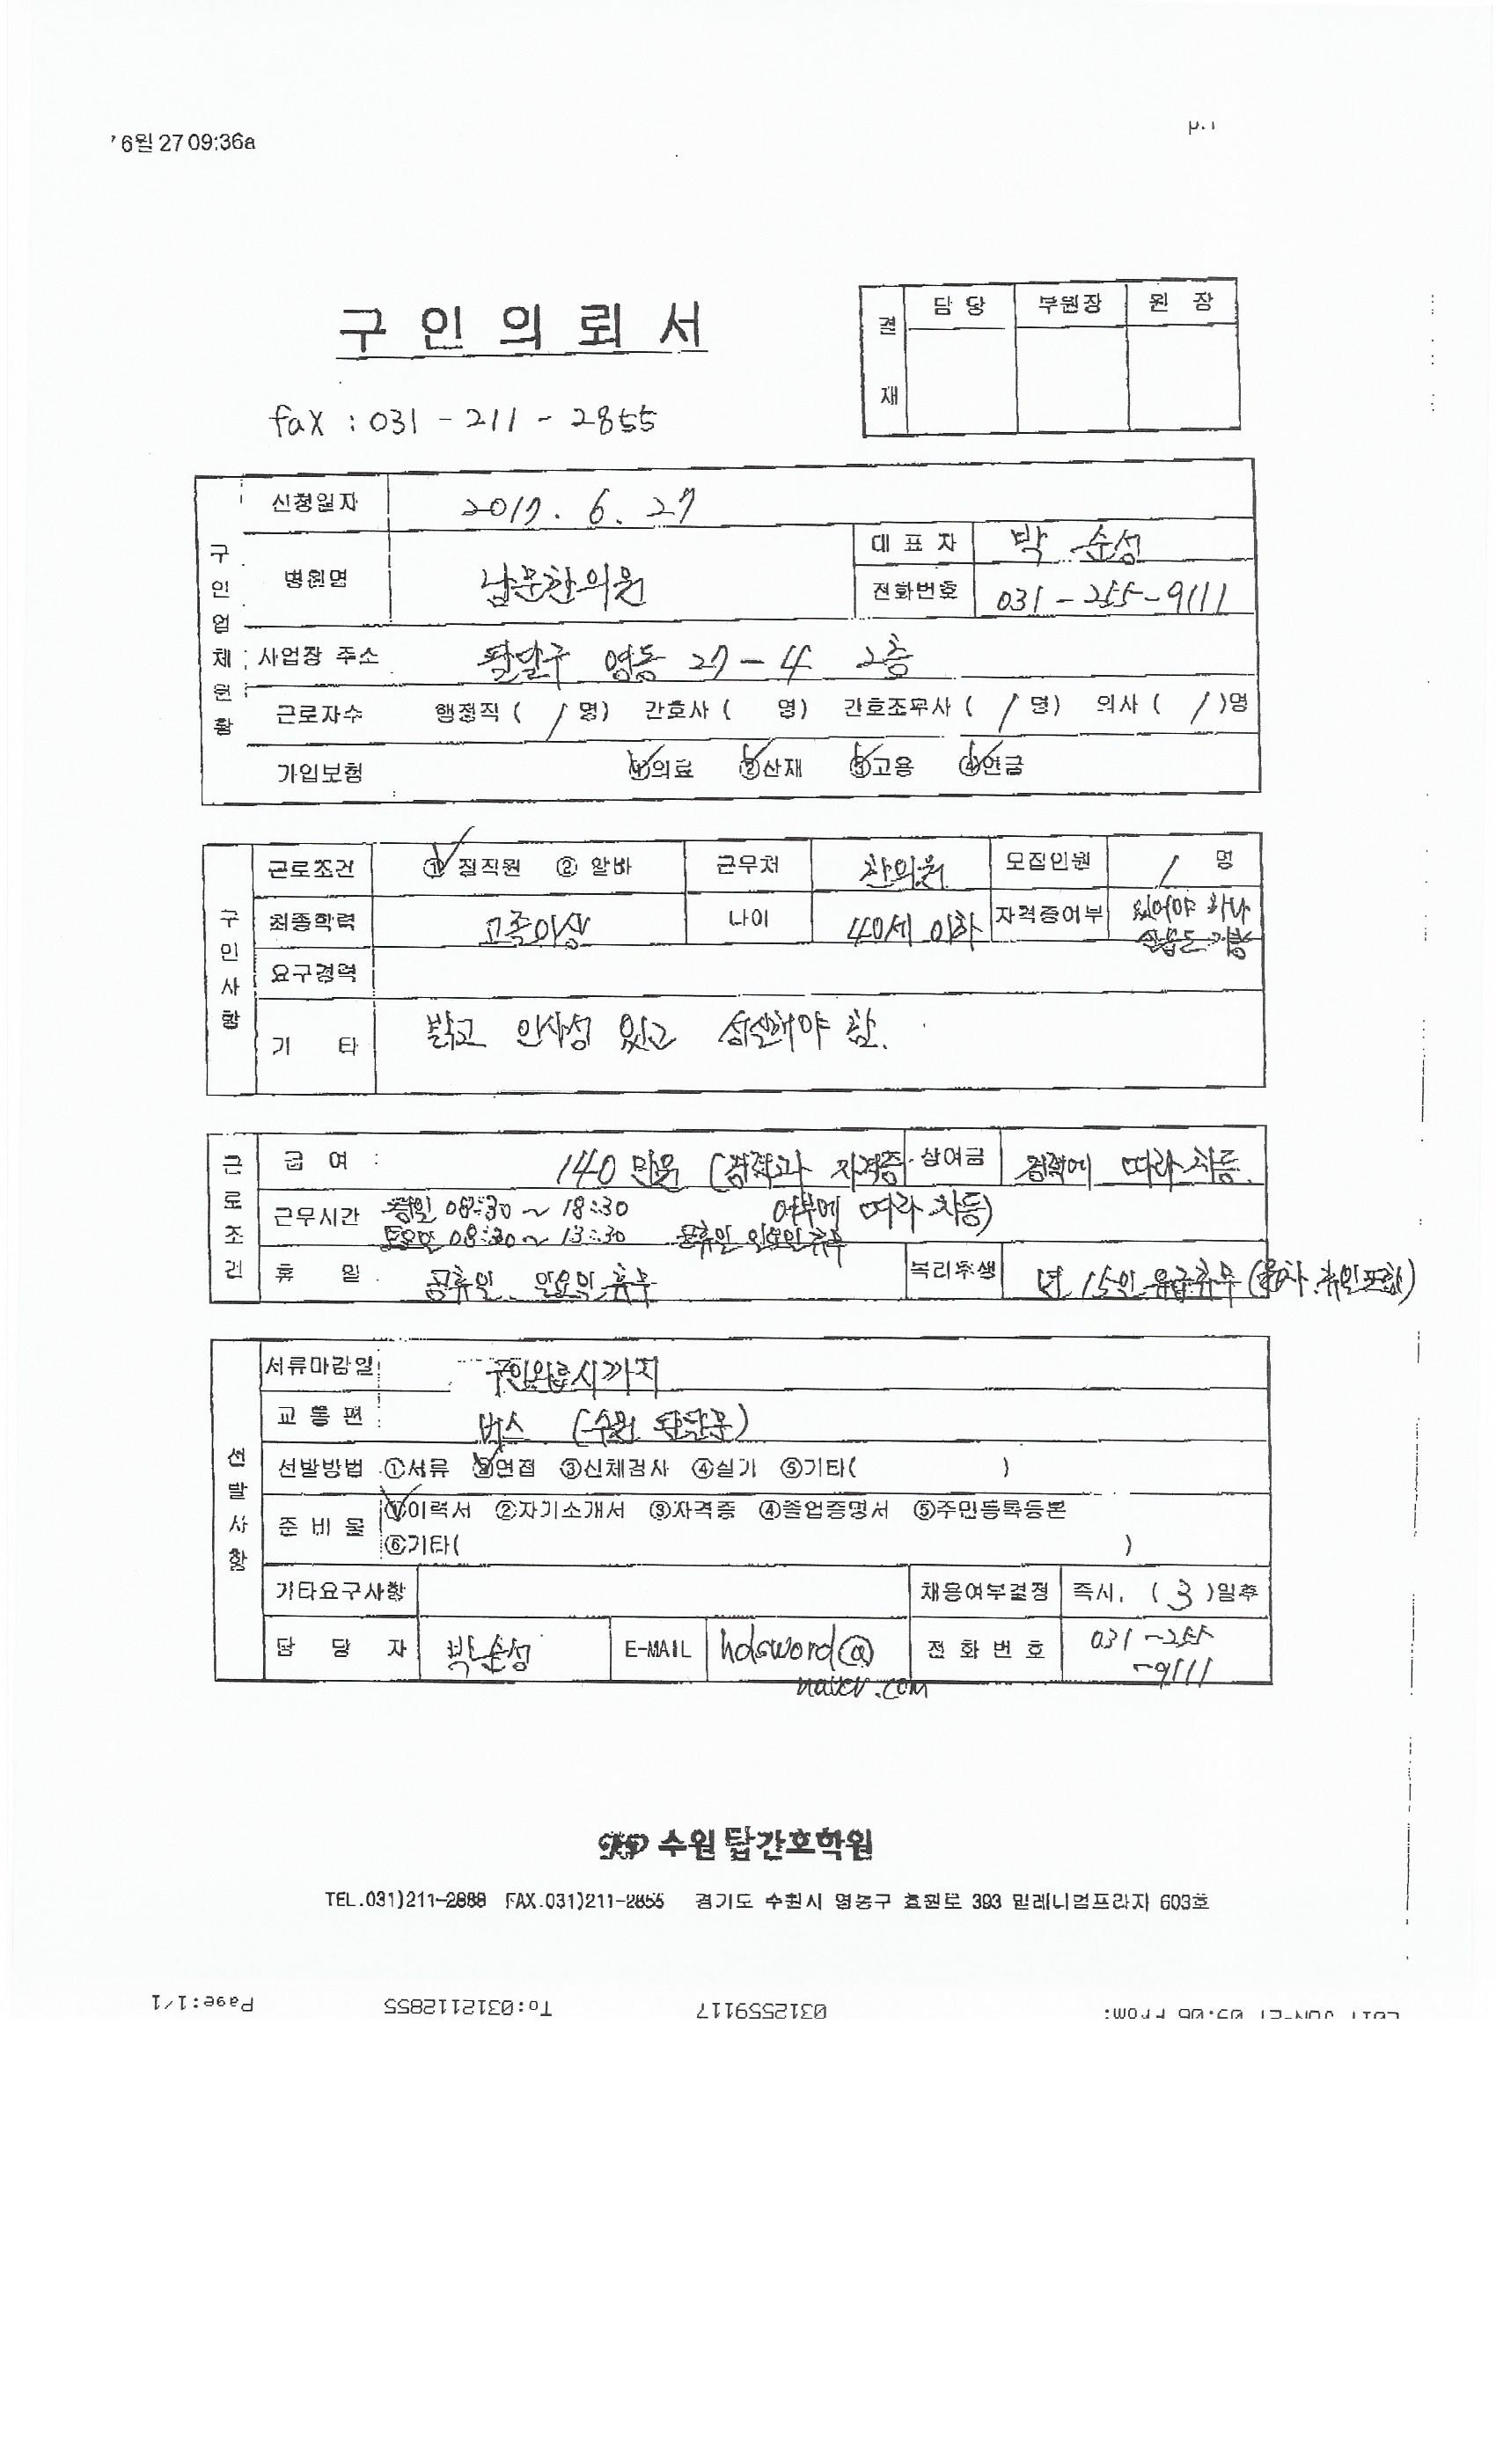 6월 27 09:36a
p.1
구 인 의 뢰 서
결 재 담 당 부원장 원 장
fax : 031 - 211 - 2855
구인업체현황
신청일자 2017. 6. 27
병원명 남문한의원 대 표 자 박 순성
전화번호 031-255-9111
사업장 주소 팔달구 영동 27-4 2층
근로자수 행정직 ( 1 명) 간호사 ( 명) 간호조무사 ( 1 명) 의사 ( 1 )명
가입보험 ①의료 ②산재 ③고용 ④연금
구인사항
근로조건 ① 정직원 ② 알바 근무처 한의원 모집인원 1 명
최종학력 고졸이상 나이 40세 이하 자격증여부 있어야 하나
실습도 가능
요구경력
기 타 밝고 인사성 있고 성실해야 함.
근로조건
급 여 : 140 만원 (경력과 자격증 상여금 경력에 따라 차등.
여부에 따라 차등)
근무시간 평일 08:30 ~ 18:30
토요일 08:30 ~ 13:30 공휴일 일요일 휴무
휴 일 공휴일 일요일 휴무 복리후생 년 15일 유급휴무 (월차.휴일포함)
선발사항
서류마감일 구인완료시까지
교 통 편 : 버스 (수원 팔달문)
선발방법 ①서류 ②면접 ③신체검사 ④실기 ⑤기타( )
준 비 물 ①이력서 ②자기소개서 ③자격증 ④졸업증명서 ⑤주민등록등본
⑥기타( )
기타요구사항 채용여부결정 즉시, ( 3 )일후
담 당 자 박순성 E-MAIL hdsword@ 전 화 번 호 031-255
naver.com -9111
수원 탑간호학원
TEL.031)211-2888 FAX.031)211-2855 경기도 수원시 영통구 효원로 393 밀레니엄프라자 603호
2017-JUN-27 09:06 From: 0312559117 To:0312112855 Page:1/1